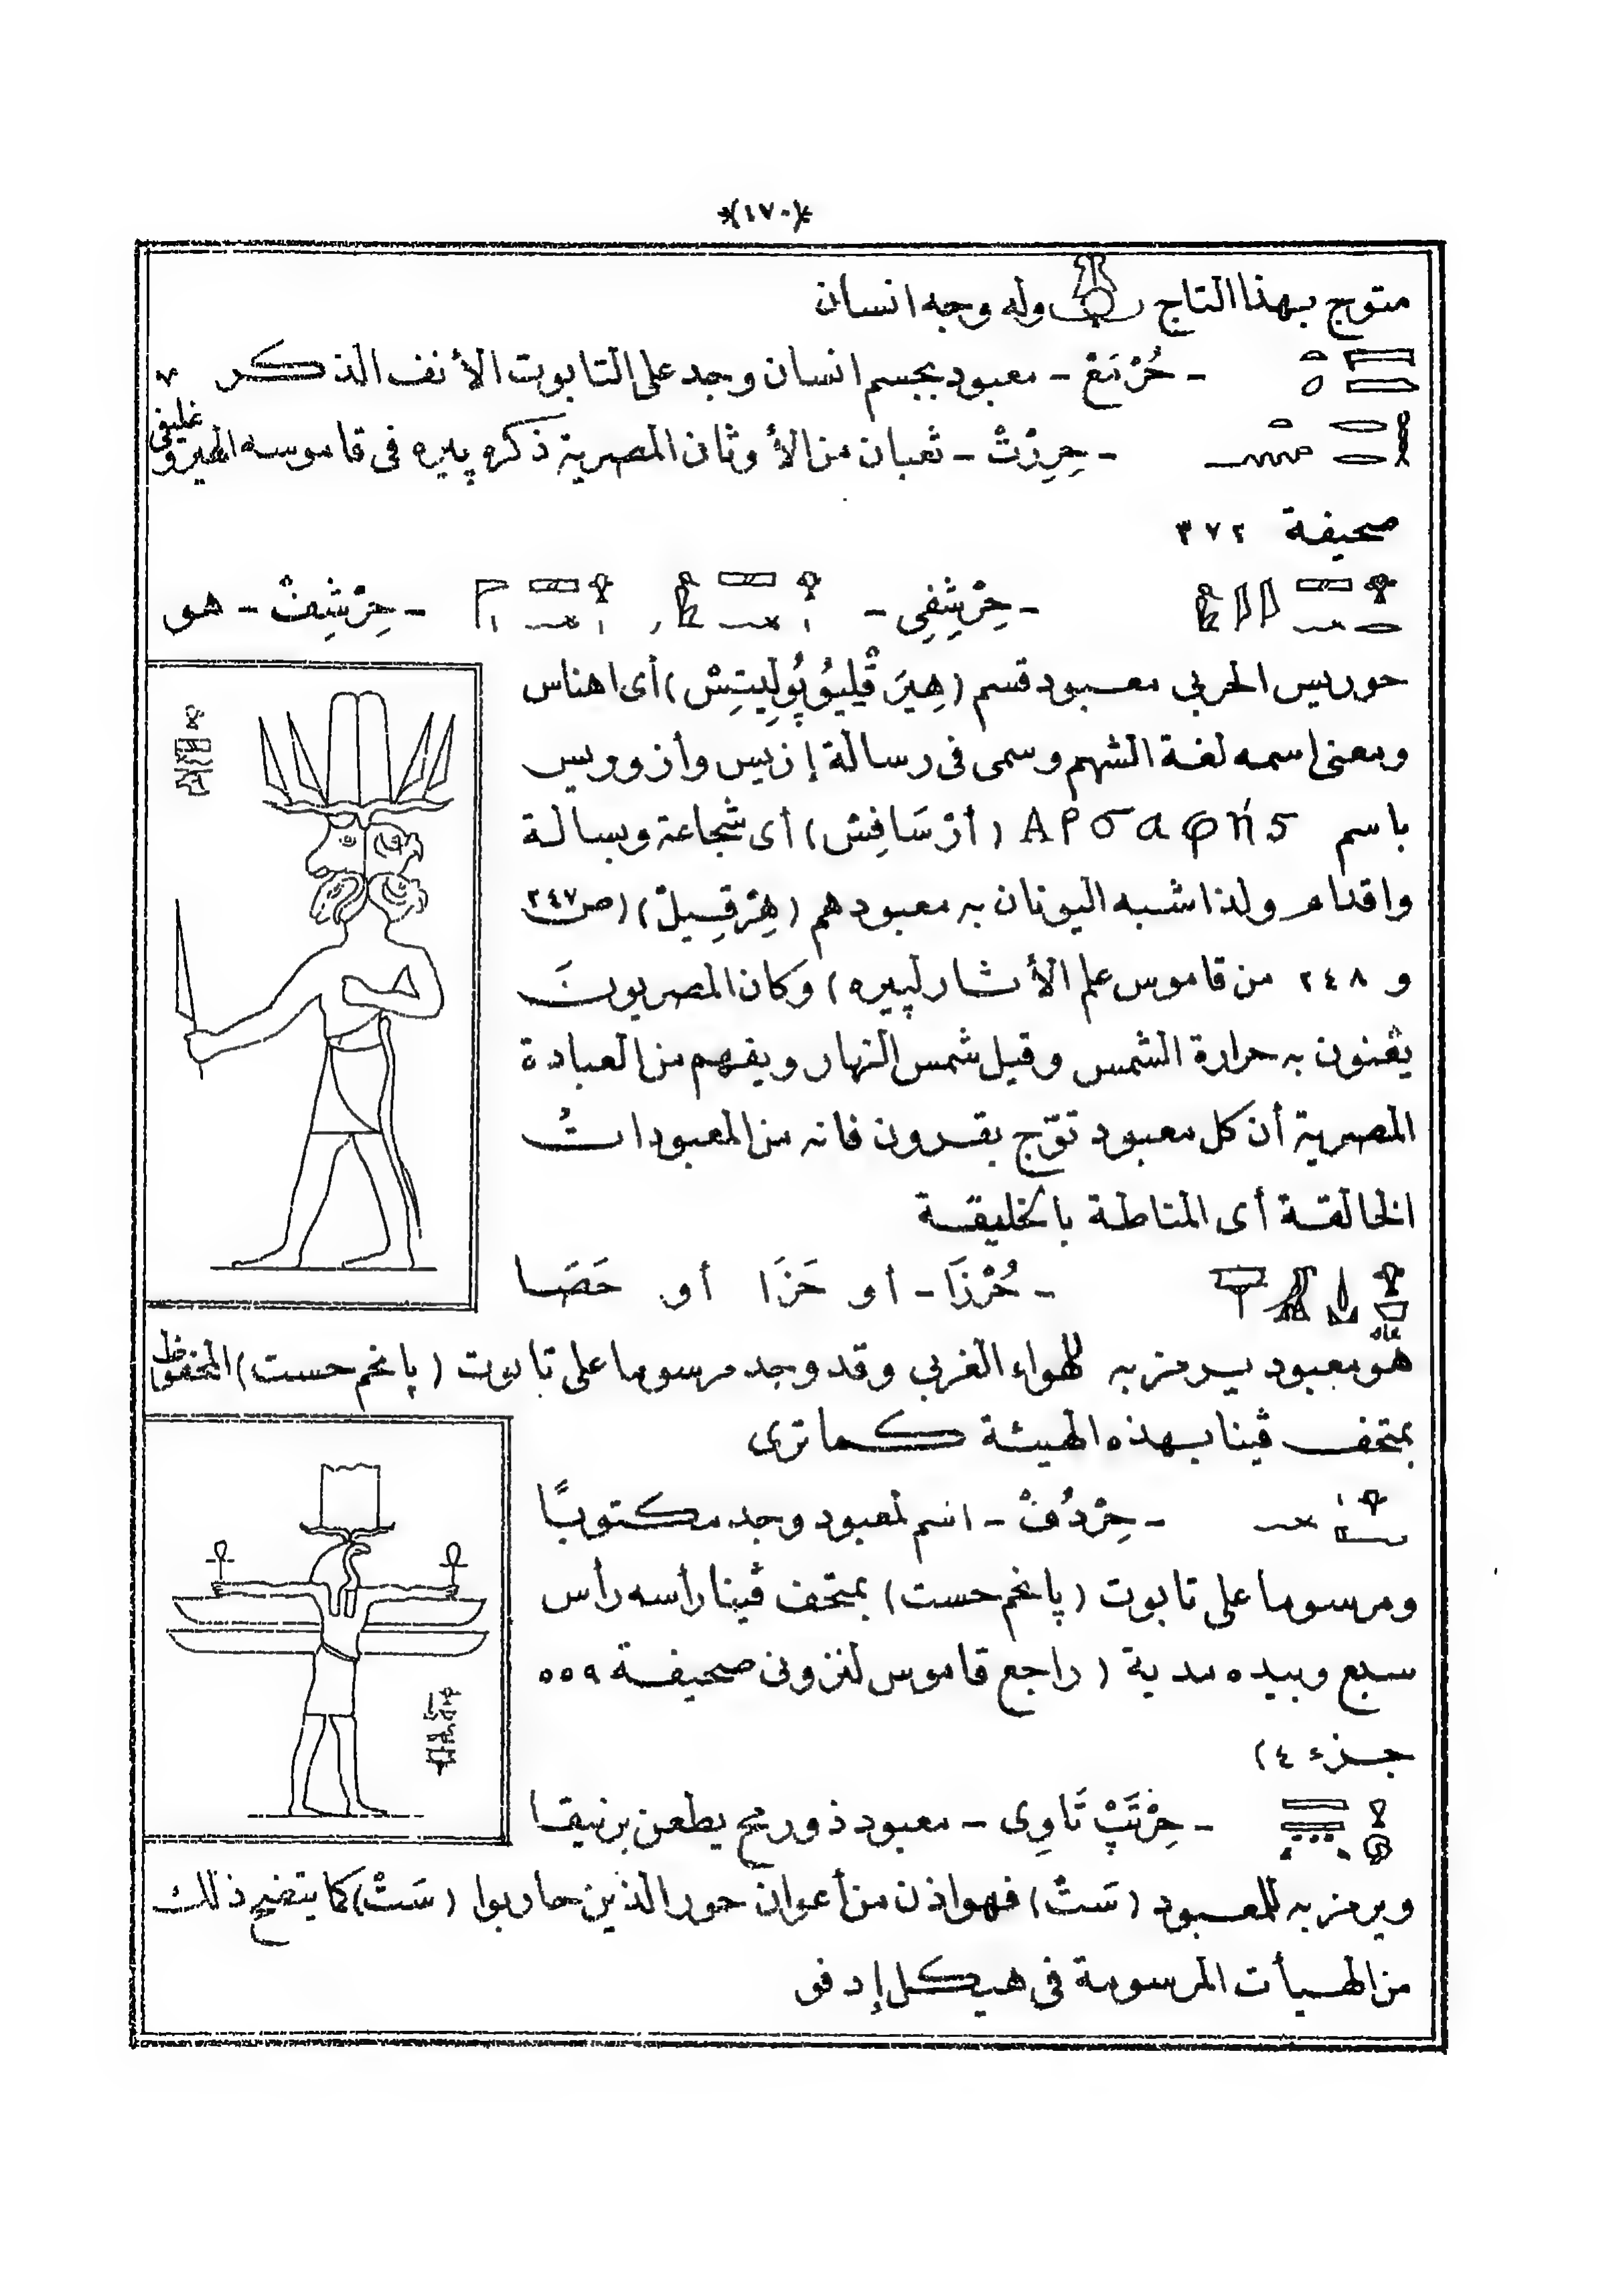 *(١٧٠)*
متوج بهذا التاج وله وجه انسان
- حُرْمَعْ - معبود بجسم انسان وجد على التابوت الأنف الذكر
- حِرِرْتْ - ثعبان من الأوثان المصرية ذكره پيره فى قاموسه الهيروغليفى
صحيفة ٣٧٢
- حِرْشِفِى - - حِرْشِفْ - هو
حوريس الحربى معبود قسم (هِيرَقْلِيُوپُولِيتِسْ) أى اهناس
ومعنى اسمه لغة الشهم وسمى فى رسالة إزيس وأزوريس
باسم Αρσαφής (أرْسَافِسْ) أى شجاعة وبسالة
واقدام ولذا شبه اليونان به معبودهم (هِرْقِيلْ) (ص ٢٤٧
و ٢٤٨ من قاموس علم الأثار لپيره) وكان المصريونَ
يعنون به حرارة الشمس وقيل شمس النهار ويفهم من العبادة
المصرية أن كل معبود توّج بقرون فانه من المعبودات
الخالقة أى المناطة بالخليقة
- حُرْزَا - أو حَزَا أو حَصَا
هو معبود يرمز به للهواء الغربى وقد وجد مرسوما على تابوت (پانحم حست) المحفوظ
بمتحف ڤينا بهذه الهيئة كما ترى
- حِرْدُفْ - اسم لمعبود وجد مكتوبًا
ومرسوما على تابوت (پانحم حست) بمتحف ڤينا رأسه رأس
سبع وبيده مدية (راجع قاموس لنزونى صحيفة ٥٥٩
جزء ٤)
- حِرْتَپْ تَاوِى - معبود ذو رمح يطعن برنيقا
ويرمز به للمعبود (سَتْ) فهو اذن من أعوان حور الذين حاربوا (سَتْ) كما يتضح ذلك
من الهيأت المرسومة فى هيكل إدفو